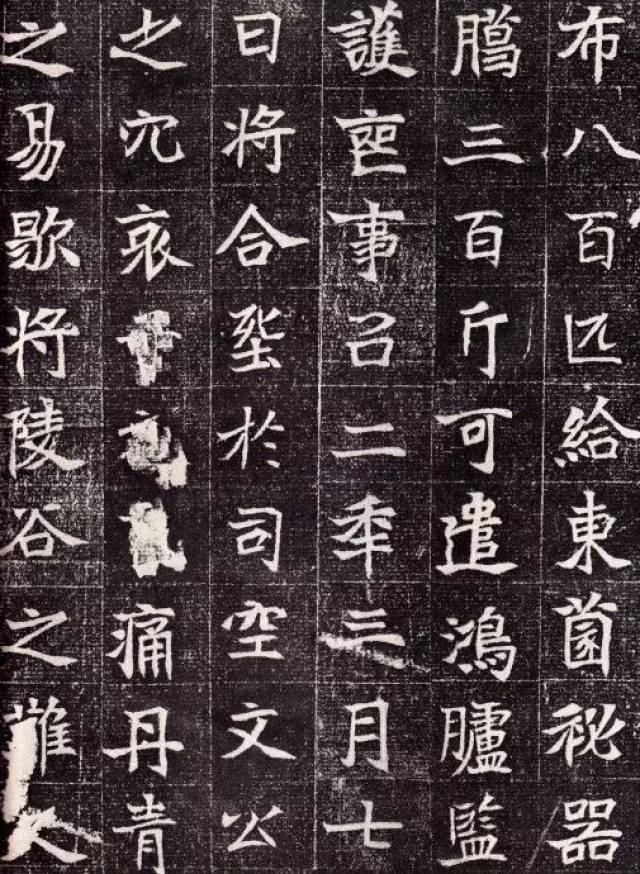 布八百匹給東薗秘器
臈三百斤可遣鴻臚監
護喪事㠯二年三月七
日将合塟於司空文公
之穴哀痛丹青
之易歇将陵谷之難久